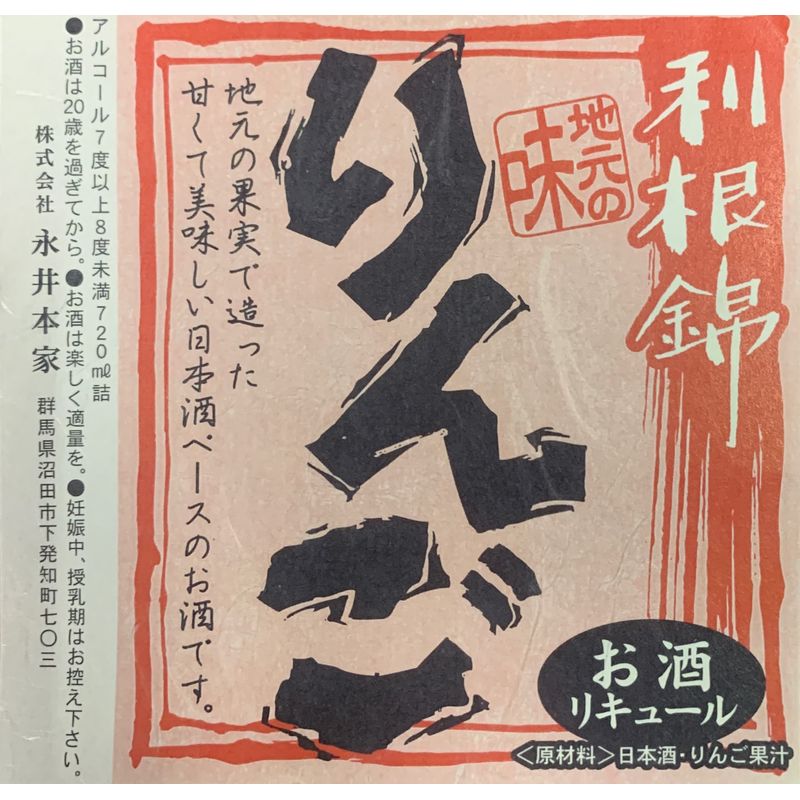 利根錦
地元の
味
りんご
地元の果実で造った
甘くて美味しい日本酒ベースのお酒です。
お酒
リキュール
＜原材料＞日本酒・りんご果汁
アルコール７度以上８度未満７２０㎖詰
●お酒は20歳を過ぎてから。●お酒は楽しく適量を。●妊娠中、授乳期はお控え下さい。
株式会社 永井本家 群馬県沼田市下発知町七〇三